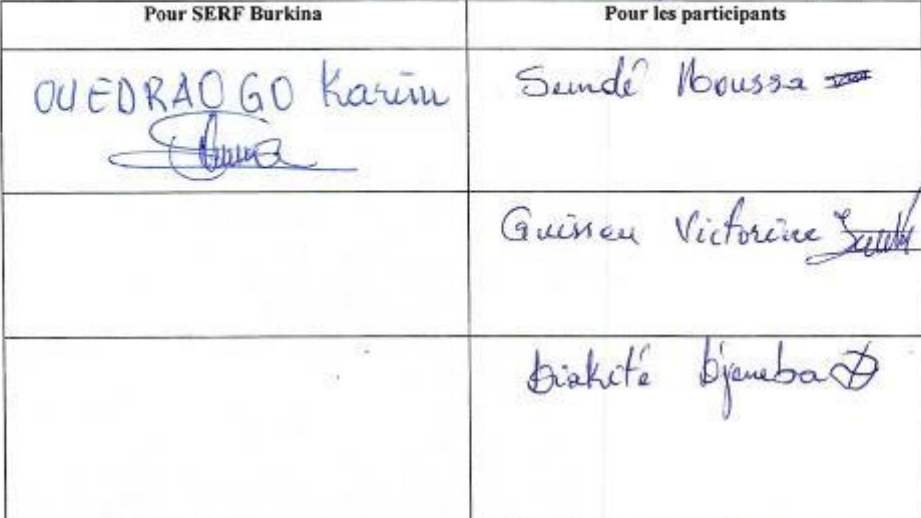 Pour SERF Burkina
Pour les participants
OUEDRAOGO Karim
Sundé Moussa
Guissou Victorine
Diakité Djeneba